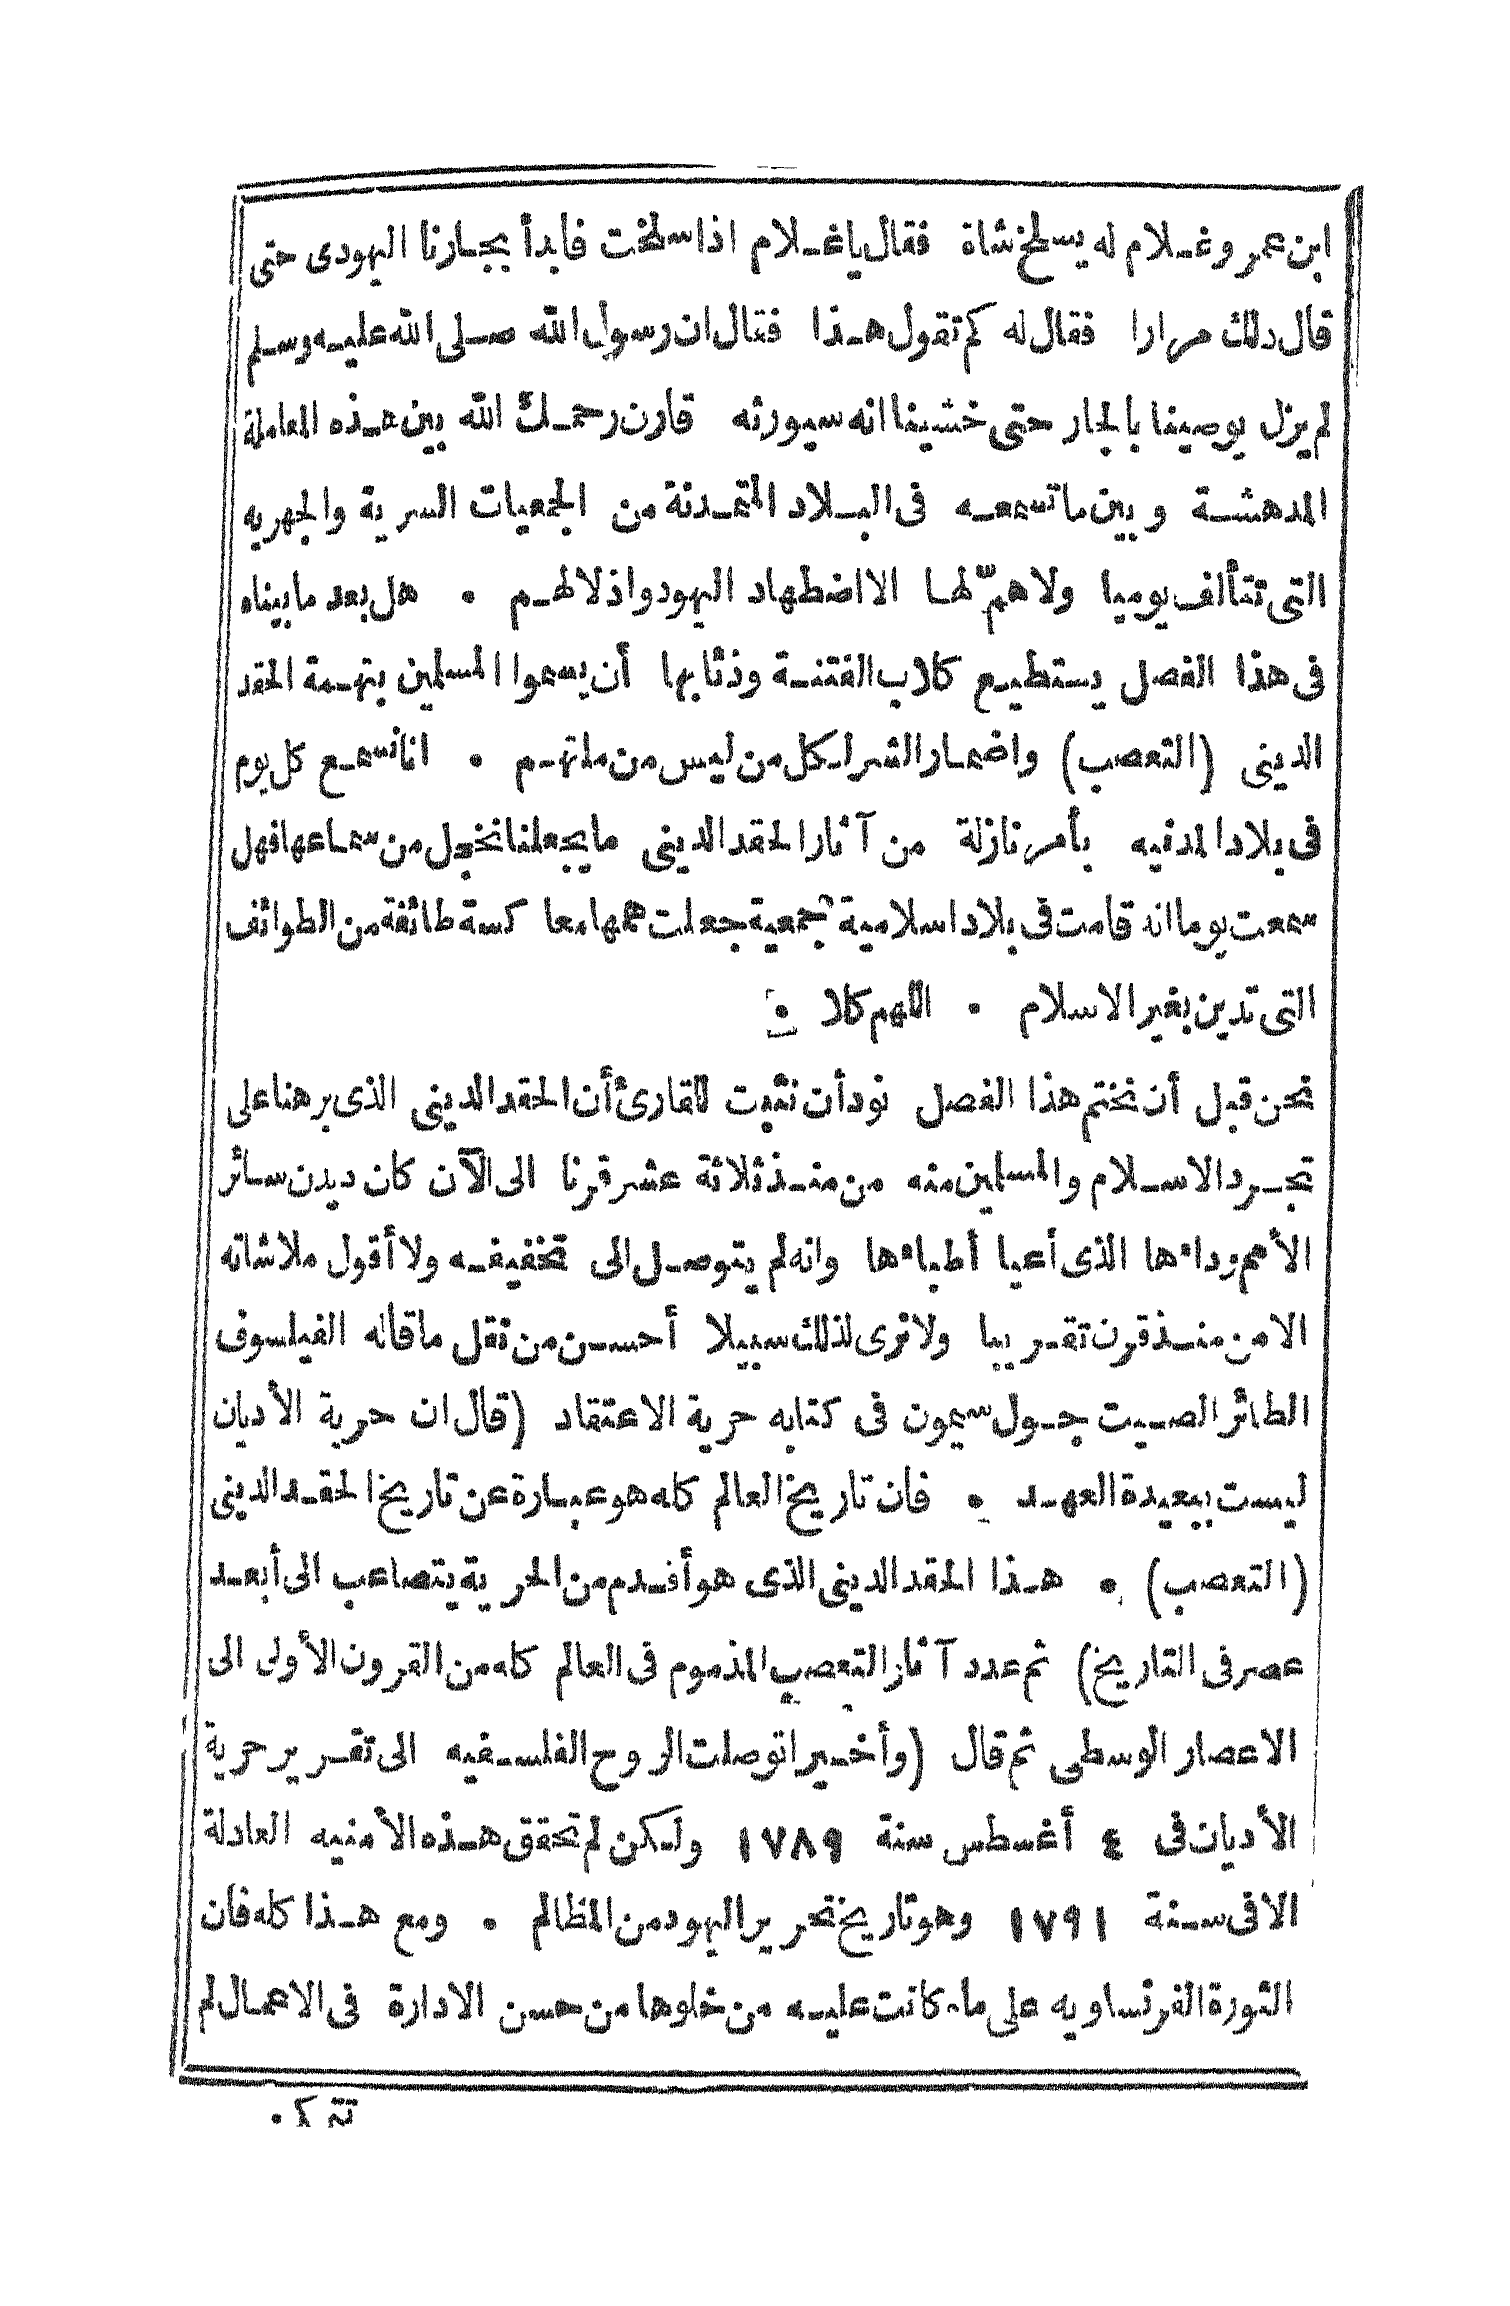 ابن عمر وغلام له يسلخ شاة فقال ياغلام اذا سلخت فابدأ بجارنا اليهودى حتى
قال ذلك مرارا فقال له كم تقول هذا فقال ان رسول الله صلى الله عليه وسلم
لم يزل يوصينا بالجار حتى خشينا انه سيورثه قارن رحمك الله بين هذه المعاملة
المدهشة وبين ما تسمعه فى البلاد المتمدنة من الجمعيات السرية والجهريه
التى تتألف يوميا ولا همّ لها الا اضطهاد اليهود واذلالهم . هل بعد ما بيناه
فى هذا الفصل يستطيع كلاب الفتنة وذئابها أن يسموا المسلمين بتهمة الحقد
الدينى (التعصب) واضمار الشر لكل من ليس من ملتهم . انا نسمع كل يوم
فى بلاد المدنيه بأمر نازلة من آثار الحقد الدينى ما يجعلنا نخجل من سماعها فهل
سمعت يوما انه قامت فى بلاد اسلامية جمعية جعلت همها معا كسة طائفة من الطوائف
التى تدين بغير الاسلام . اللهم كلا .
نحن قبل أن نختم هذا الفصل نود أن نثبت للقارئ أن الحقد الدينى الذى برهنا على
تجرد الاسلام والمسلمين منه من منذ ثلاثة عشر قرنا الى الآن كان ديدن سائر
الأمم وداءها الذى أعيا أطباءها وانه لم يتوصل الى تخفيفه ولا أقول ملاشاته
الا من منذ قرن تقريبا ولا نرى لذلك سبيلا أحسن من نقل ما قاله الفيلسوف
الطائر الصيت جول سيمون فى كتابه حرية الاعتقاد (قال ان حرية الأديان
ليست ببعيدة العهد . فان تاريخ العالم كله هو عبارة عن تاريخ الحقد الدينى
(التعصب) . هذا الحقد الدينى الذى هو أقدم من الحرية يتصاعب الى أبعد
عصر فى التاريخ) ثم عدد آثار التعصب المذموم فى العالم كله من القرون الأولى الى
الاعصار الوسطى ثم قال (وأخيرا توصلت الروح الفلسفيه الى تقرير حرية
الأديان فى ٤ أغسطس سنة ١٧٨٩ ولكن لم تحقق هذه الأمنيه العادلة
الا فى سنة ١٧٩١ وهو تاريخ تحرير اليهود من المظالم . ومع هذا كله فان
الثورة الفرنساويه على ما كانت عليه من خلوها من حسن الادارة فى الاعمال لم